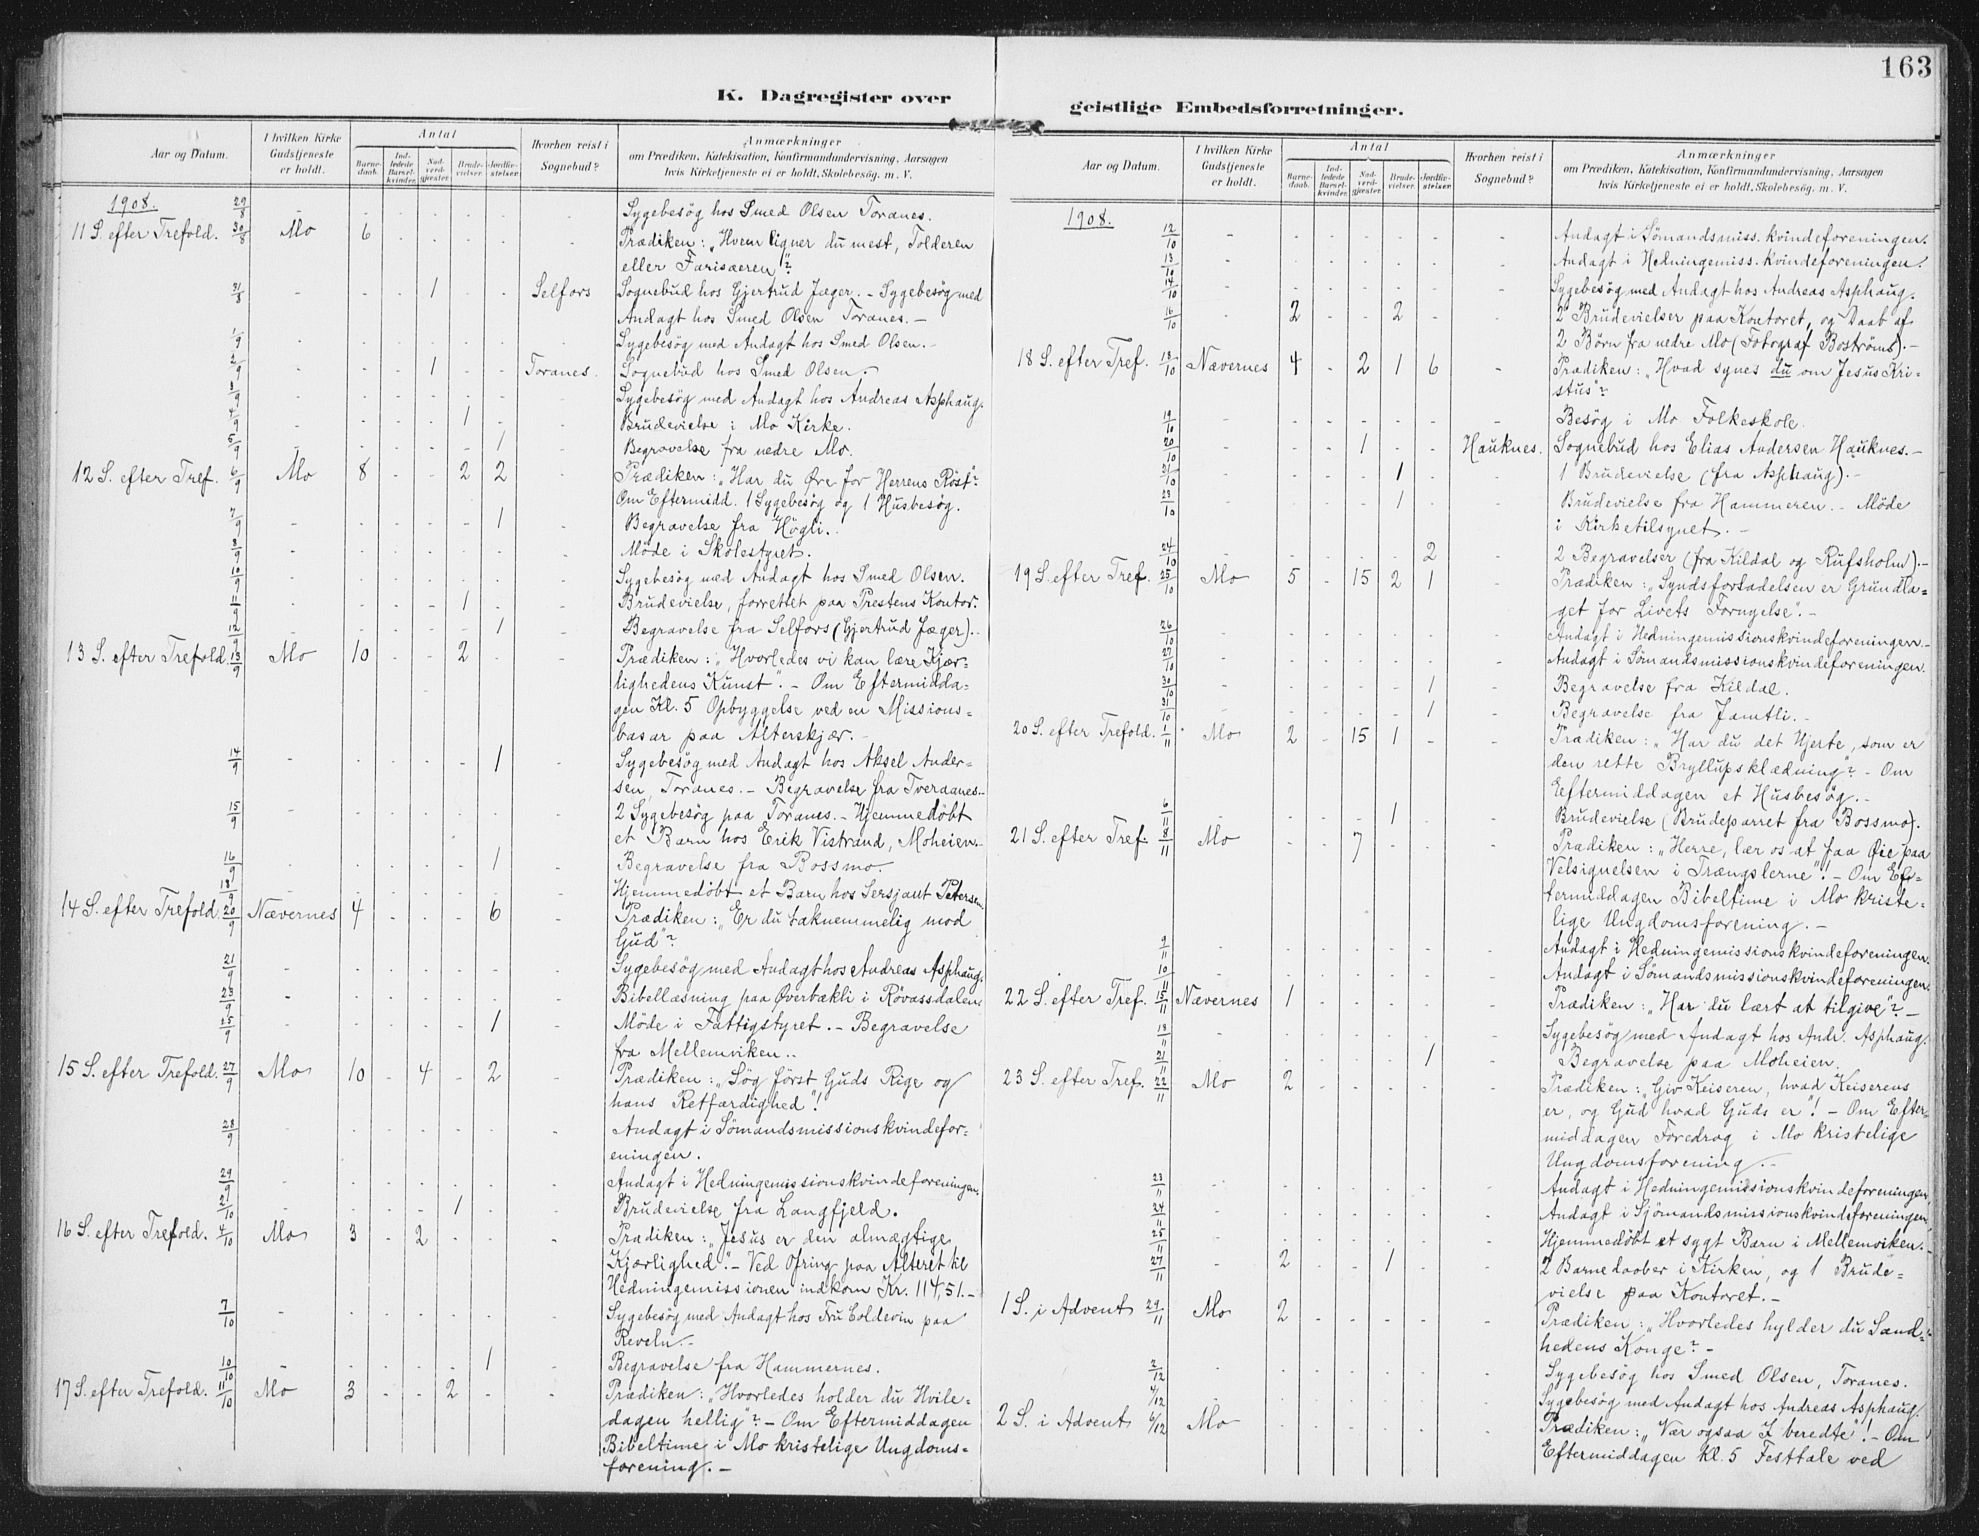 163
K. Dagregister over geistlige Embedsforretninger.
Aar og Datum. I hvilken Kirke Gudstjeneste er holdt. Antal Barnedaab. Indledede Barselkvinder. Nadverdgjester. Brudevielser. Jordfæstelser. Hvorhen reist i Sognebud? Anmærkninger om Prædiken, Katekisation, Konfirmandundervisning, Aarsagen hvis Kirketjeneste ei er holdt, Skolebesøg m. V.
1908. 29/8 - - - - - - - Sygebesøg hos Smed Olsen Toranes.
11 S. efter Trefold. 30/8 Mo 6 - - - - - Prædiken: „Hvem ligner du mest, Tolderen
eller Farisæeren"?
31/8 - - - 1 - - Selfors Sognebud hos Gjertrud Jæger. - Sygebesøg med
Andagt hos Smed Olsen Toranes. -
1/9 - - - - - - - Sygebesøg med Andagt hos Smed Olsen. -
2/9 - - - 1 - - Toranes. Sognebud hos Smed Olsen.
3/9 - - - - - - - Sygebesøg med Andagt hos Andreas Asphaug.
4/9 - - - - 1 - - Brudevielse i Mo Kirke.
5/9 - - - - - 1 - Begravelse fra nedre Mo.
12 S. efter Tref. 6/9 Mo 8 - - 2 2 - Prædiken: „Har du Øre for Herrens Røst"?
Om Eftermidd. 1 Sygebesøg og 1 Husbesøg.
7/9 - - - - - 1 - Begravelse fra Høgli.
8/9 - - - - - - - Møde i Skolestyret.
10/9 - - - - - - - Sygebesøg med Andagt hos Smed Olsen.
11/9 - - - - 1 - - Brudevielse, forrettet paa Prestens Kontor.
12/9 - - - - - 1 - Begravelse fra Selfors (Gjertrud Jæger). -
13 S. efter Trefold. 13/9 Mo 10 - - 2 - - Prædiken: „Hvorledes vi kan lære Kjær-
lighedens Kunst". - Om Eftermidda-
gen Kl. 5 Opbyggelse ved en Missions-
basar paa Alterskjær. -
14/9 - - - - - 1 - Sygebesøg med Andagt hos Aksel Ander-
sen, Toranes. - Begravelse fra Tveraanes. -
15/9 - - - - - - - 2 Sygebesøg paa Toranes. - Hjemmedøbt
et Barn hos Erik Vistrand, Moheien. -
16/9 - - - - - 1 - Begravelse fra Bossmo.
18/9 - - - - - - - Hjemmedøbt et Barn hos Sersjant Petersen.
14 S. efter Trefold. 20/9 Nævernes 4 - - - 6 - Prædiken: „Er du taknemmelig mod
Gud"?
21/9 - - - - - - - Sygebesøg med Andagt hos Andreas Asphaug.
23/9 - - - - - - - Bibellæsning paa Øverbækli i Røvassdalen.
25/9 - - - - - 1 - Møde i Fattigstyret. - Begravelse
fra Mellemviken. -
15 S. efter Trefold. 27/9 Mo 10 - 4 - 2 - Prædiken: „Søg først Guds Rige og
hans Retfærdighed"!
28/9 - - - - - - - Andagt i Sømandsmissionskvindefor-
eningen.
29/9 - - - - - - - Andagt i Hedningemissionskvindeforeningen.
2/10 - - - - 1 - - Brudevielse fra Langfjeld.
16 S. efter Trefold. 4/10 Mo 3 - 2 - - - Prædiken: „Jesus er den almægtige
Kjærlighed". - Ved Ofring paa Alteret til
Hedningemissionen indkom Kr. 114,51. -
7/10 - - - - - - - Sygebesøg med Andagt hos Fru Coldevin paa
Reveln. -
10/10 - - - - - 1 - Begravelse fra Hammernes.
17 S. efter Trefold. 11/10 Mo 3 - - 2 - - Prædiken: „Hvorledes holder du Hvile-
dagen hellig"? - Om Eftermiddagen
Bibeltime i Mo kristelige Ungdoms-
forening. -
Aar og Datum. I hvilken Kirke Gudstjeneste er holdt. Antal Barnedaab. Indledede Barselkvinder. Nadverdgjester. Brudevielser. Jordfæstelser. Hvorhen reist i Sognebud? Anmærkninger om Prædiken, Katekisation, Konfirmandundervisning, Aarsagen hvis Kirketjeneste ei er holdt, Skolebesøg m. V.
1908. 12/10 - - - - - - - Andagt i Sømandsmiss. kvindeforeningen.
13/10 - - - - - - - Andagt i Hedningemiss. kvindeforeningen.
14/10 - - - - - - - Sygebesøg med Andagt hos Andreas Asphaug.
16/10 - 2 - - 2 - - 2 Brudevielser paa Kontoret, og Daab af
2 Børn fra nedre Mo (Fotograf Boströms). -
18 S. efter Tref. 18/10 Nævernes 4 - 2 1 6 - Prædiken: „Hvad synes du om Jesus Kri-
stus"?
19/10 - - - - - - - Besøg i Mo Folkeskole.
20/10 - - - 1 - - Hauknes. Sognebud hos Elias Andersen Hauknes. -
21/10 - - - - 1 - - 1 Brudevielse (fra Asphaug). -
23/10 - - - - 1 - - Brudevielse fra Hammeren. - Møde
i Kirketilsynet. -
24/10 - - - - - 2 - 2 Begravelser (fra Kildal og Rufsholm). -
19 S. efter Tref. 25/10 Mo 5 - 15 2 1 - Prædiken: „Syndsforladelsen er Grundla-
get for Livets Fornyelse". -
26/10 - - - - - - - Andagt i Hedningemissionskvindeforeningen. -
27/10 - - - - - - - Andagt i Sømandsmissionskvindeforeningen.
30/10 - - - - - 1 - Begravelse fra Kildal.
31/10 - - - - - 1 - Begravelse fra Jamtli. -
20 S. efter Trefold. 1/11 Mo 2 - 15 1 - - Prædiken: „Har du det Hjerte, som er
den rette Bryllupsklædning"? - Om
Eftermiddagen et Husbesøg. -
6/11 - - - - 1 - - Brudevielse (Brudeparret fra Bossmo).
21 S. efter Tref. 8/11 Mo - - 7 - - - Prædiken: „Herre, lær os at faa Øie paa
Velsignelsen i Trængslerne"! - Om Ef-
termiddagen Bibeltime i Mo kriste-
lige Ungdomsforening. -
9/11 - - - - - - - Andagt i Hedningemissionskvindeforeningen.
10/11 - - - - - - - Andagt i Sømandsmissionskvindeforeningen.
22 S. efter Tref. 15/11 Nævernes 1 - - - - - Prædiken: „Har du lært at tilgive"? -
18/11 - - - - - - - Sygebesøg med Andagt hos Andr. Asphaug.
21/11 - - - - - 1 - Begravelse paa Moheien.
23 S. efter Tref. 22/11 Mo 2 - - - - - Prædiken: „Giv Keiseren, hvad Keiserens
er, og Gud hvad Guds er"! - Om Efter-
middagen Foredrag i Mo kristelige
Ungdomsforening. -
23/11 - - - - - - - Andagt i Hedningemissionskvindeforeningen
24/11 - - - - - - - Andagt i Sjømandsmissionskvindeforeningen
25/11 - - - - - - - Hjemmedøbt et sygt Barn i Mellemviken. -
27/11 - 2 - - 1 - - 2 Barnedaaber i Kirken, og 1 Brude-
vielse paa Kontoret. -
1 S. i Advent 29/11 Mo 2 - - - - - Prædiken: „Hvorledes hylder du Sand-
hedens Konge"? -
2/12 - - - - - - - Sygebesøg hos Smed Olsen, Toranes.
4/12 - - - - - - - Sygebesøg med Andagt hos Andreas Asphaug.
2 S. i Advent 6/12 Mo - - - - - - Prædiken: „Vær ogsaa I beredte"! - Om
Eftermiddagen Kl. 5 Festtale ved